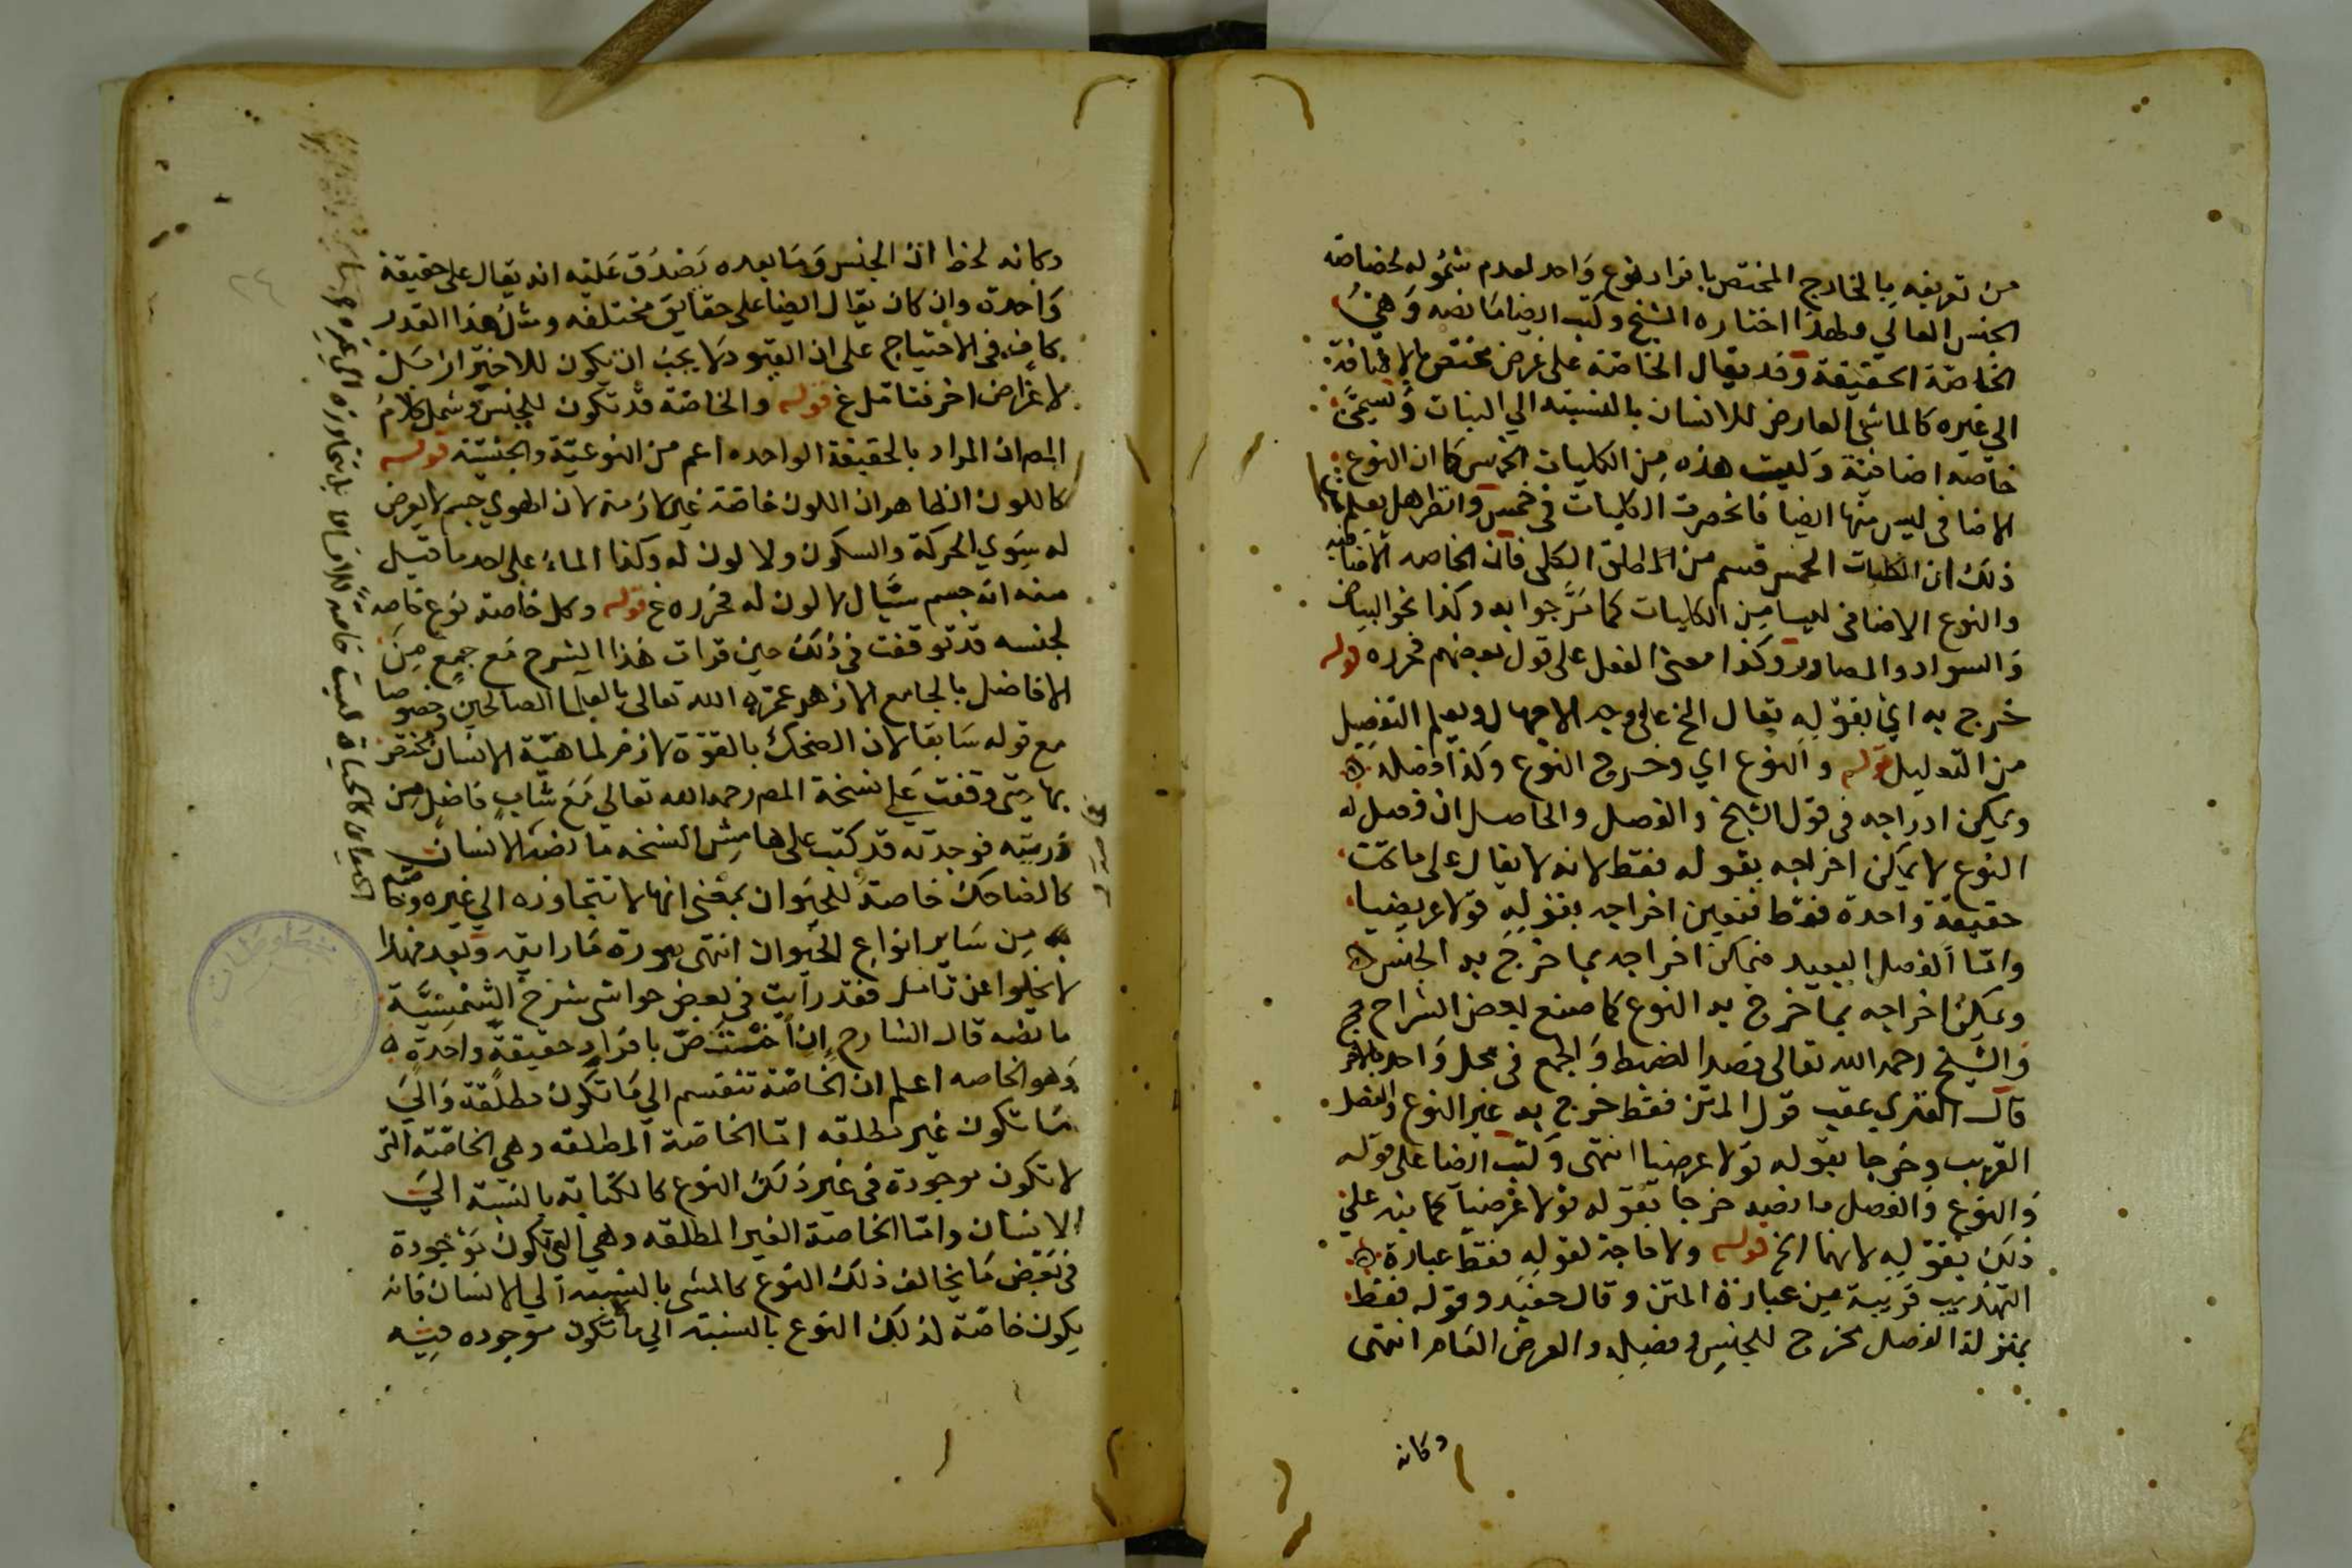 من تعريفه بالخارج المختص بافراد نوع واحد لعدم شموله لخضاصة
الجنس العالي ولهذا اختاره الشيخ وكتب ايضا ما نصه وهي
الخاصة الحقيقة وقد يقال الخاصة على عرض مختص بالاضافة
الي غيره كالماشي العارض للانسان بالنسبته الي النبات وتسمى
خاصة اضافية وليست هذه من الكليات الخمس كما ان النوع
الاضافي ليس منها ايضا فانحصرت الكليات في خمس وانظر هل يعلم
ذلك ان الكليات الخمس قسم من المطلق الكلي فان الخاصه الاضافيه
والنوع الاضافى ليسا من الكليات كما مر جوابه وكذا نحو البياض
والسواد والمصادر وكذا معنى الفعل على قول بعضهم فحرره قوله
خرج به اي بقوله يقال الخ على وجه الاجمال ويعلم التفصيل
من التعليل قوله والنوع اي وخرج النوع وكذا فصله ه
ويمكن ادراجه في قول الشيخ والفصل والحاصل ان فصل له
النوع لا يمكن اخراجه بقوله فقط لانه لا يقال على ما تحت
حقيقة واحدة فقط فتعين اخراجه بقوله قولا عرضيا
واما الفصل البعيد فيمكن اخراجه بما خرج به الجنس ه
ويمكن اخراجه بما خرج به النوع كما صنع بعض الشراح
والشيخ رحمه الله تعالى قصد الضبط والجمع في محل واحد
قال الفنري عقب قول المتن فقط خرج به غير النوع والفصل
القريب وخرجا بقوله قولا عرضيا انتهى وكتب ايضا على قوله
والنوع والفصل ما نصه خرجا بقوله قولا عرضيا كما نبه على
ذلك بقوله لانهما الخ قوله ولا حاجة لقوله فقط عبارة ه
التهذيب قريبة من عبارة المتن وقال حفيد وقوله فقط
بمنزلة الفصل مخرج للجنس وفصله والعرض العام انتهى
وكانه
وكانه لحظ ان الجنس وما بعده يصدق عليه انه يقال على حقيقة
واحدة وان كان يقال ايضا على حقايق مختلفه ومثل هذا القدر
كاف في الاحتياج على ان القيود لا يجب ان يكون للاحتراز بل
لاغراض اخر فتامل ع قوله والخاصة قد تكون للجنس وشمل كلام
المص ان المراد بالحقيقة الواحده اعم من النوعية والجنسية قوله
كاللون الظاهر ان اللون خاصة غير لازمة لان الهوي جسم لا يعرض
له سوي الحركة والسكون ولا لون له وكذا الماء على احد ما قيل
منه انه جسم سيال لا لون له فحرره ع قوله وكل خاصة نوع خاصه
لجنسه قد توقفت في ذلك حين قرات هذا الشرح مع جمع من
الافاضل بالجامع الازهر عمره الله تعالى بالعلما الصالحين وخصوصا
مع قوله سابقا لان الضحك بالقوة لازم لماهية الانسان مختص
بها حتى وقفت على نسخة المص رحمه الله تعالي مع شاب فاضل من
ذريته فوجدته قد كتب على هامش النسخه ما نصه الانسان
كالضاحك خاصة للحيوان بمعنى انها لا تتجاوزه الي غيره
من ساير انواع الحيوان انتهى صورة ما رايته وبعد فهذا
لا يخلوا عن تامل فقد رايت في بعض حواشي شرح الشمسية
ما نصه قال الشارح ان اختص بافراد حقيقة واحدة ه
وهو الخاصه اعلم ان الخاصة تنقسم الي ما تكون مطلقة والي
ما تكون غير مطلقه اما الخاصة المطلقه وهي الخاصة التي
لا تكون موجودة في غير ذلك النوع كالكتابة بالنسبة الي
الانسان واما الخاصة الغير المطلقه وهي التي تكون موجودة
في بعض ما يخالف ذلك النوع كالمشي بالنسبه الي الانسان فانه
يكون خاصة لذلك النوع بالنسبة الي ما تكون موجوده فيه